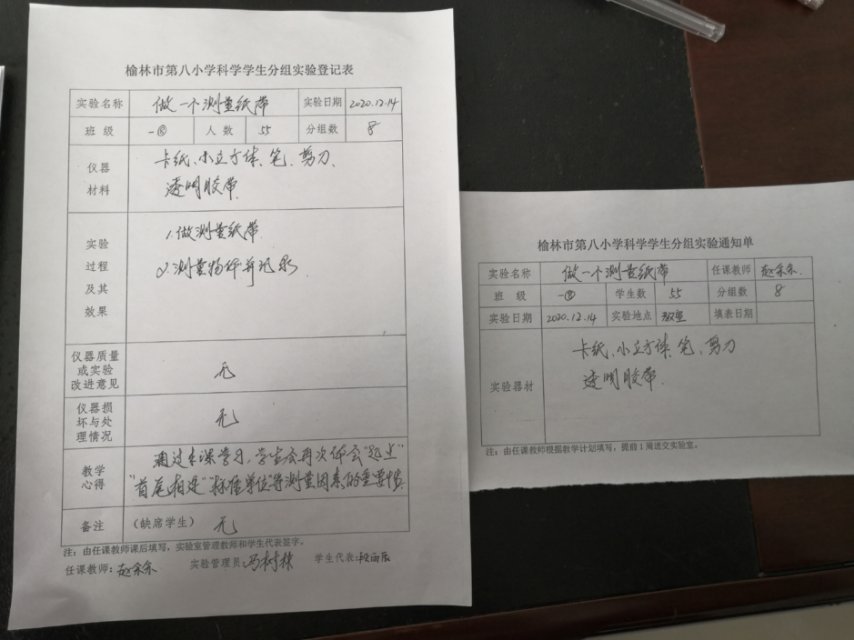 榆林市第八小学科学学生分组实验登记表
实验名称 做一个测量纸带 实验日期 2020.12.14
班 级 一⑧ 人 数 55 分组数 8
仪器材料 卡纸、小立方体、笔、剪刀、
透明胶带
实验过程及其效果 1.做测量纸带
2.测量物体并记录
仪器质量或实验改进意见 无
仪器损坏与处理情况 无
教学心得 通过本课学习,学生会再次体会"起点"
"首尾相连""标准单位"等测量因素的重要性
备注 (缺席学生) 无
注:由任课教师课后填写,实验室管理教师和学生代表签字。
任课教师: 实验管理员:冯树林 学生代表:
榆林市第八小学科学学生分组实验通知单
实验名称 做一个测量纸带 任课教师
班 级 一⑧ 学生数 55 分组数 8
实验日期 2020.12.14 实验地点 教室 填表日期
实验器材 卡纸、小立方体、笔、剪刀
透明胶带
注:由任课教师根据教学计划填写,提前1周送交实验室。